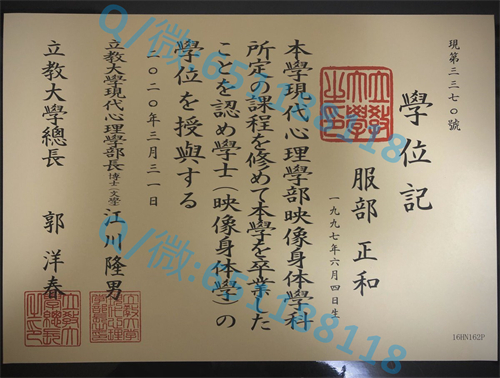 現第三三七〇號
學位記
服部 正和
一九九七年六月四日生
本學現代心理學部映像身体學科
所定の課程を修めて本學を卒業した
ことを認め學士(映像身体學)の
學位を授與する
二〇二〇年三月三一日
立教大學現代心理學部長 博士(文學) 江川 隆男
立教大學總長 郭 洋春
立教大學之印
16HN162P
Q/微:6511881 18
Q/微:6511881 18